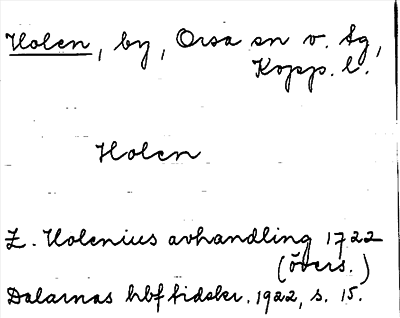 Holen, by, Orsa sn o. tg,
Kopp. l.
Holen
E. Holenius avhandling 1722
(övers.)
Dalarnas hbf tidskr. 1922, s. 15.